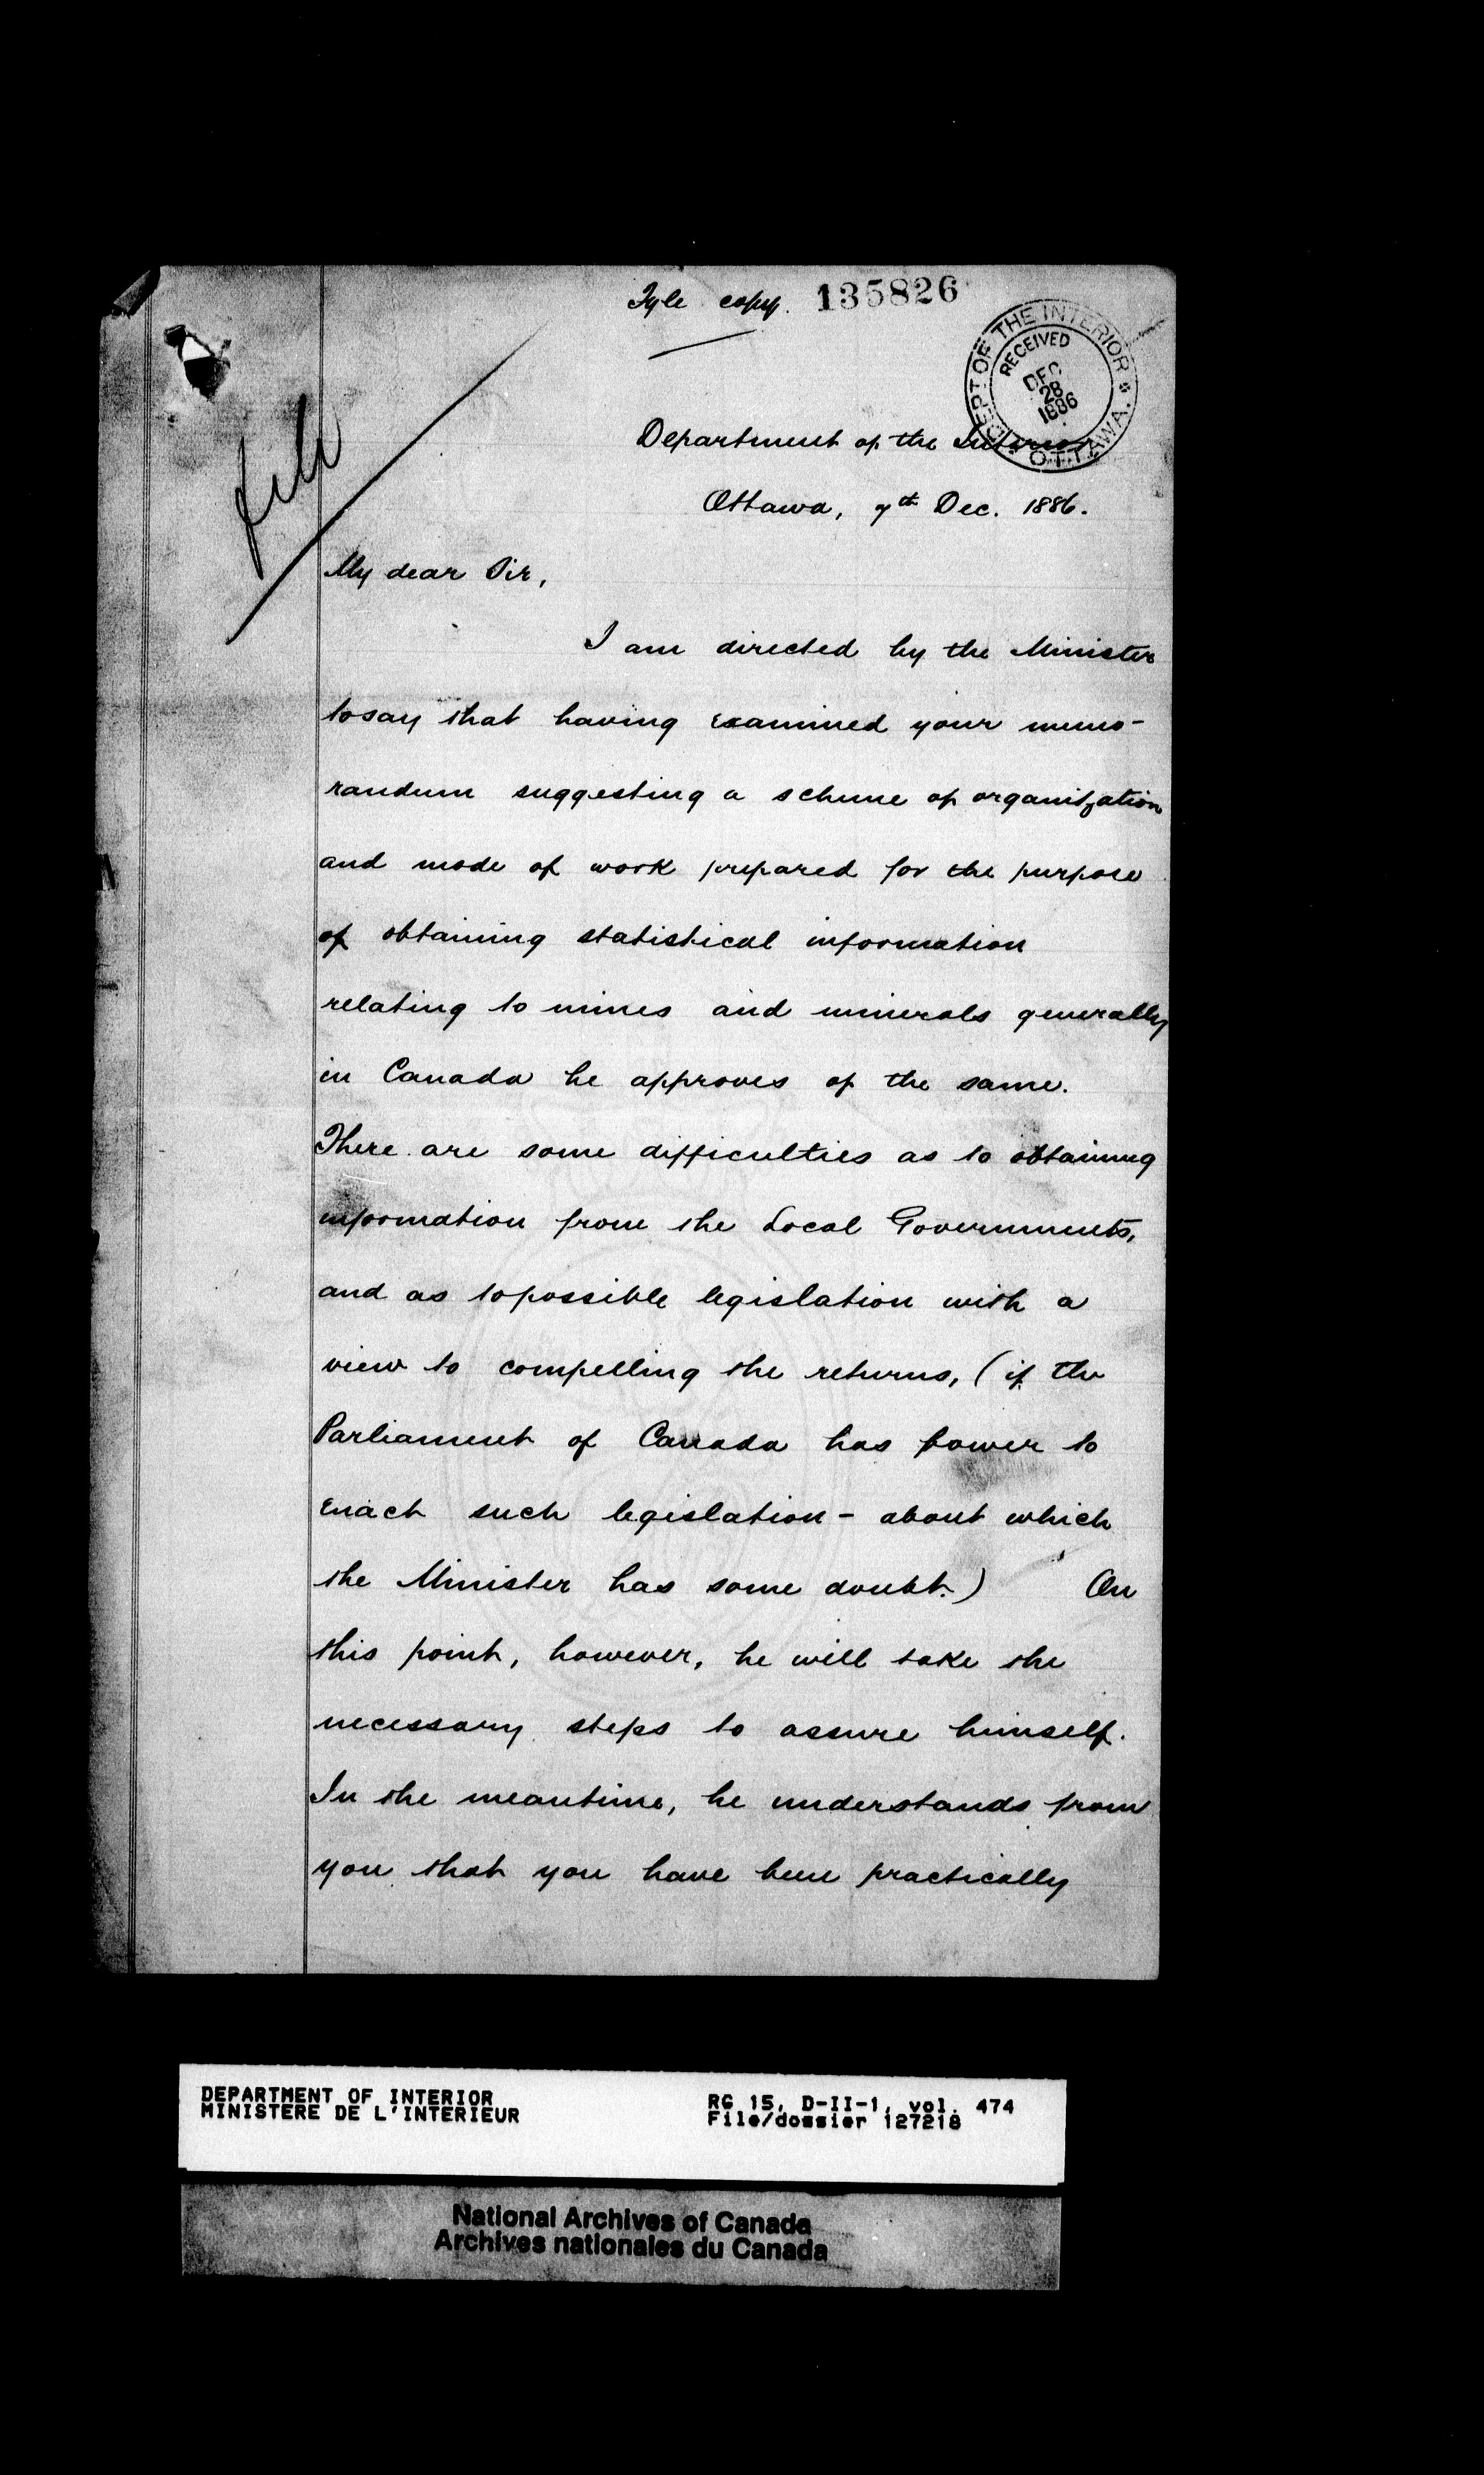 Fyle copy. 135826
DEPT OF THE INTERIOR
RECEIVED
DEC
28
1886
OTTAWA.
File
Department of the Interior
Ottawa, 7th Dec. 1886.
My dear Sir,
I am directed by the Minister
to say that having examined your memo-
randum suggesting a scheme of organization
and mode of work prepared for the purpose
of obtaining statistical information
relating to mines and minerals generally
in Canada he approves of the same.
There are some difficulties as to obtaining
information from the Local Governments,
and as to possible legislation with a
view to compelling the returns, (if the
Parliament of Canada has power to
enact such legislation - about which
the Minister has some doubt.) On
this point, however, he will take the
necessary steps to assure himself.
In the meantime, he understands from
you that you have been practically
DEPARTMENT OF INTERIOR RG 15, D-II-1, vol. 474
MINISTERE DE L'INTERIEUR File/dossier 127218
National Archives of Canada
Archives nationales du Canada